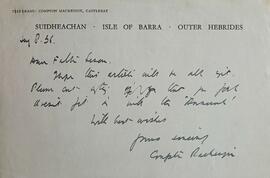 TELEGRAMS: COMPTON MACKENZIE, CASTLEBAY
SUIDHEACHAN - ISLE OF BARRA - OUTER HEBRIDES
8. 36.
Dear Father
I hope this article will be all right.
Please cut if you
doesn't fit in with the
With best wishes
Yours sincerely
Compton Mackenzie